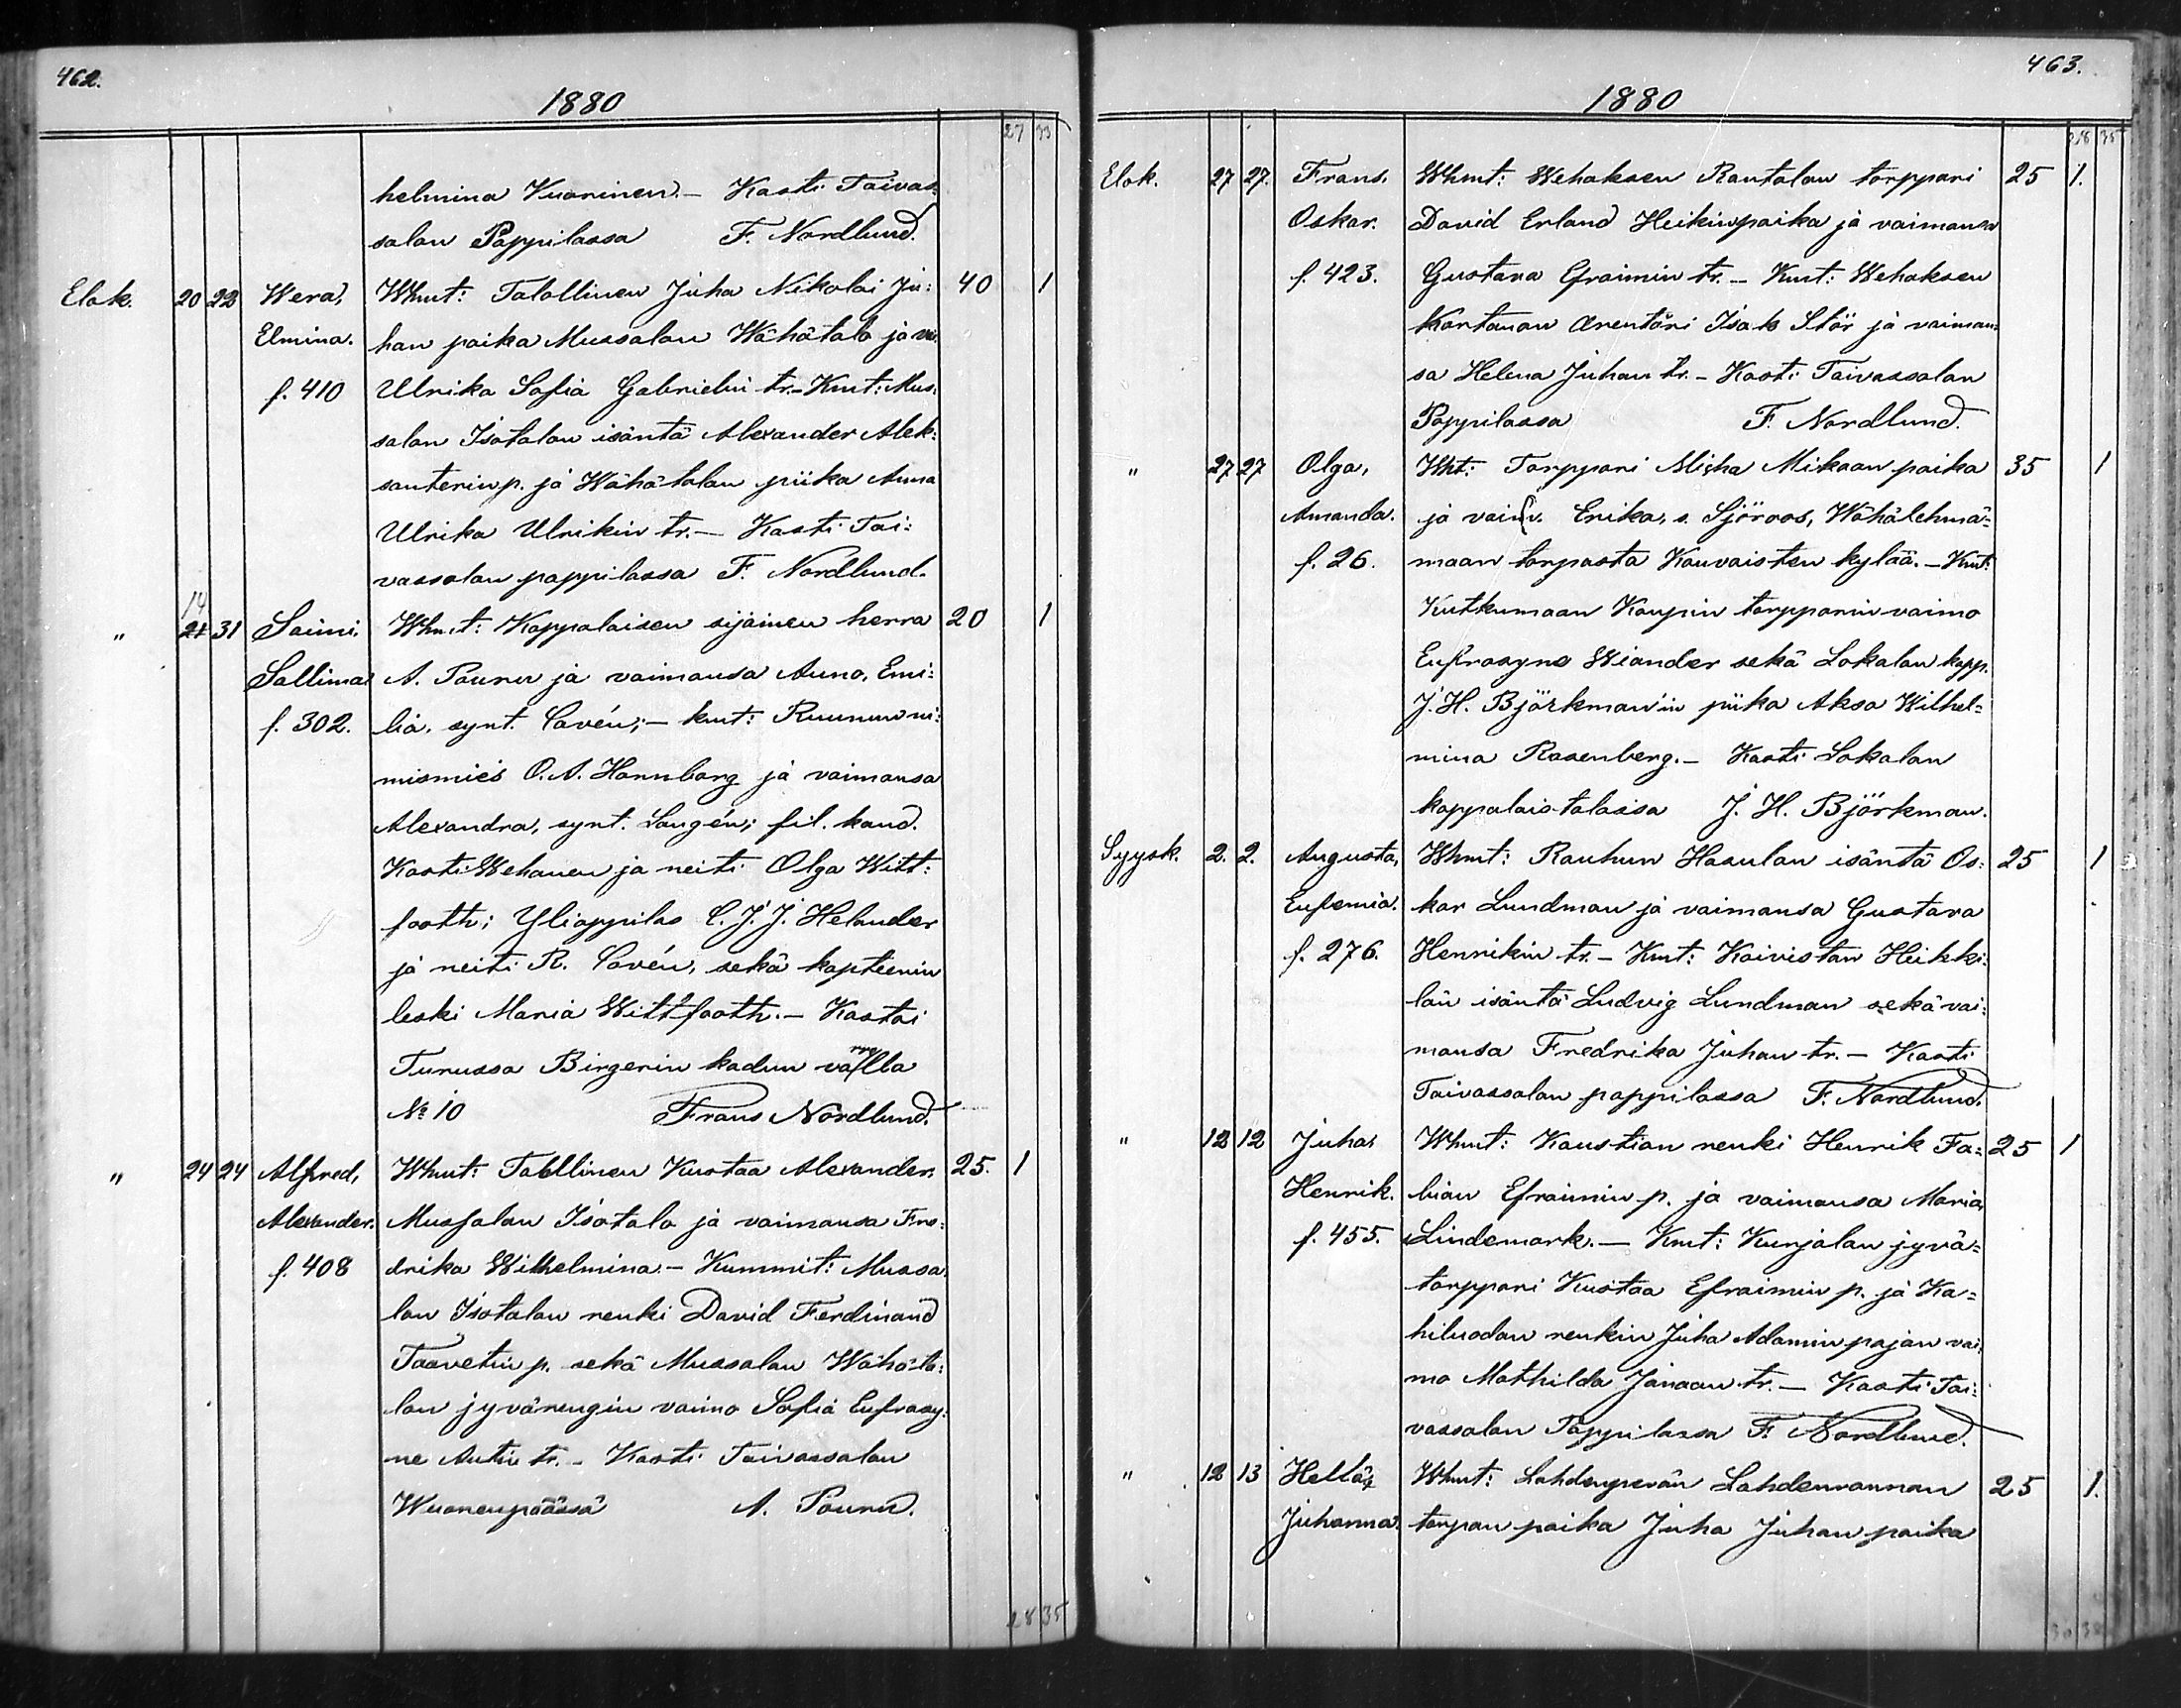 462.
1880
27 33
helmina Vuorinen. – Kasti Taivas
salon Pappilassa F. Nordlund.
Elok. 20 22 Wera, Whmt: Talollinen Juha Nikolai Ju: 40 1
Elmina. han poika Mussalon Wähätalo ja vai.
f. 410 Ulrika Sofia Gabrielin tr. – Kmt: Mus:
salon Isotalon isäntä Alexander Alek:
santerin p. ja Wähätalon piika Anna
Ulrika Ulrikin tr. – Kasti Tai:
vassalon pappilassa F. Nordlund.
14
" 21 31 Saimi, Whmt: Kappalaisen sijainen herra 20 1
Sallima A. Pounu ja vaimonsa Auno, Emi:
f. 302. lia, synt. Cavén; – kmt: Ruununni:
mismies O. A. Hannborg ja vaimonsa
Alexandra, synt. Langén; fil. kand.
Kosti Wehanen ja neiti Olga Witt:
footh; Ylioppilas C. J. J. Helander
ja neiti R. Cavén, sekä kapteenin
leski Maria Wittfooth. – Kastoi
Turussa Birgerin kadun varrella
№ 10 Frans Nordlund.
" 24 24 Alfred, Whmt: Talollinen Kustaa Alexander. 25. 1
Alexander. Mussalon Isotalo ja vaimonsa Fre:
f. 408 drika Wilhelmina. – Kummit: Mussa.
lon Isotalon renki David Ferdinand
Taavetin p. sekä Mussalon Wähäta:
lon jyvärengin vaimo Sofia Eufrosy:
ne Antin tr. – Kasti Taivassalon
Wuorenpäässä A. Pounu.
28 35
463.
1880
28 35
Elok. 27 27. Frans. Whmt: Wehaksen Rantalan torppari 25 1.
Oskar. David Erland Heikinpoika ja vaimonsa
f. 423. Gustava Efraimin tr. – Kmt: Wehaksen
Kartanon arentöri Isak Stör ja vaimon:
sa Helena Juhan tr. – Kasti Taivassalon
Pappilassa F. Nordlund.
" 27 27 Olga, Wht: Torppari Miska Mikaan poika 35 1
Amanda. ja vaim. Erika, s. Sjöroos, Wähälehmä:
f. 26. maan torpasta Kauvaisten kylää. – Kmt:
Kutkumaan Kaupin torpparin vaimo
Eufrosyne Wiander sekä Lokalan kapp.
J. H. Björkman'in piika Aksa Wilhel=
mina Rosenberg. – Kasti Lokalan
kappalais-talossa J. H. Björkman.
Syysk. 2. 2. Augusta, Whmt: Rauhun Hasulan isäntä Os: 25 1
Eufemia. kar Lundman ja vaimonsa Gustava
f. 276. Henrikin tr. – Kmt: Koiviston Heikki:
län isäntä Ludvig Lundman sekä vai:
monsa Fredrika Juhan tr. – Kasti
Taivassalon pappilassa F. Nordlund.
" 12 12 Juha, Whmt: Kaustian renki Henrik Fa= 25 1
Henrik. bian Efraimin p. ja vaimonsa Maria,
f. 455. Lindemark. – Kmt: Kunjalan jyvä=
torppari Kustaa Efraimin p. ja Ka=
hiluodon renkin Juha Adamin pojan vai:
mo Mathilda Janaan tr. – Kasti Tai:
vassalon Pappilassa F. Nordlund.
" 12 13 Hellä, Whmt: Lahdenperän Lahdenrannan 25 1.
Juhanna. torpan poika Juha Juhan poika